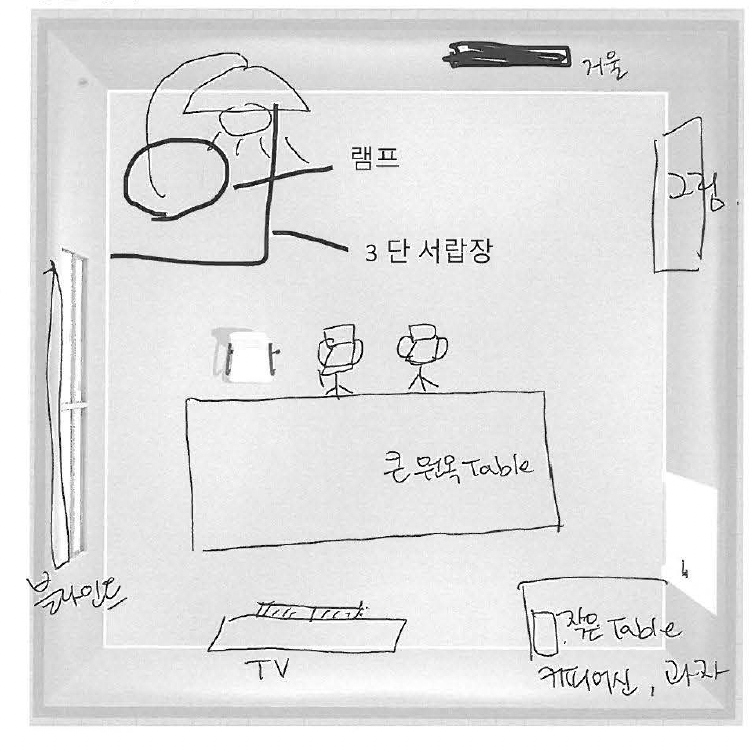 거울
램프
그림
3단 서랍장
큰 원목 Table
블라인드
작은 Table
TV
커피머신, 과자